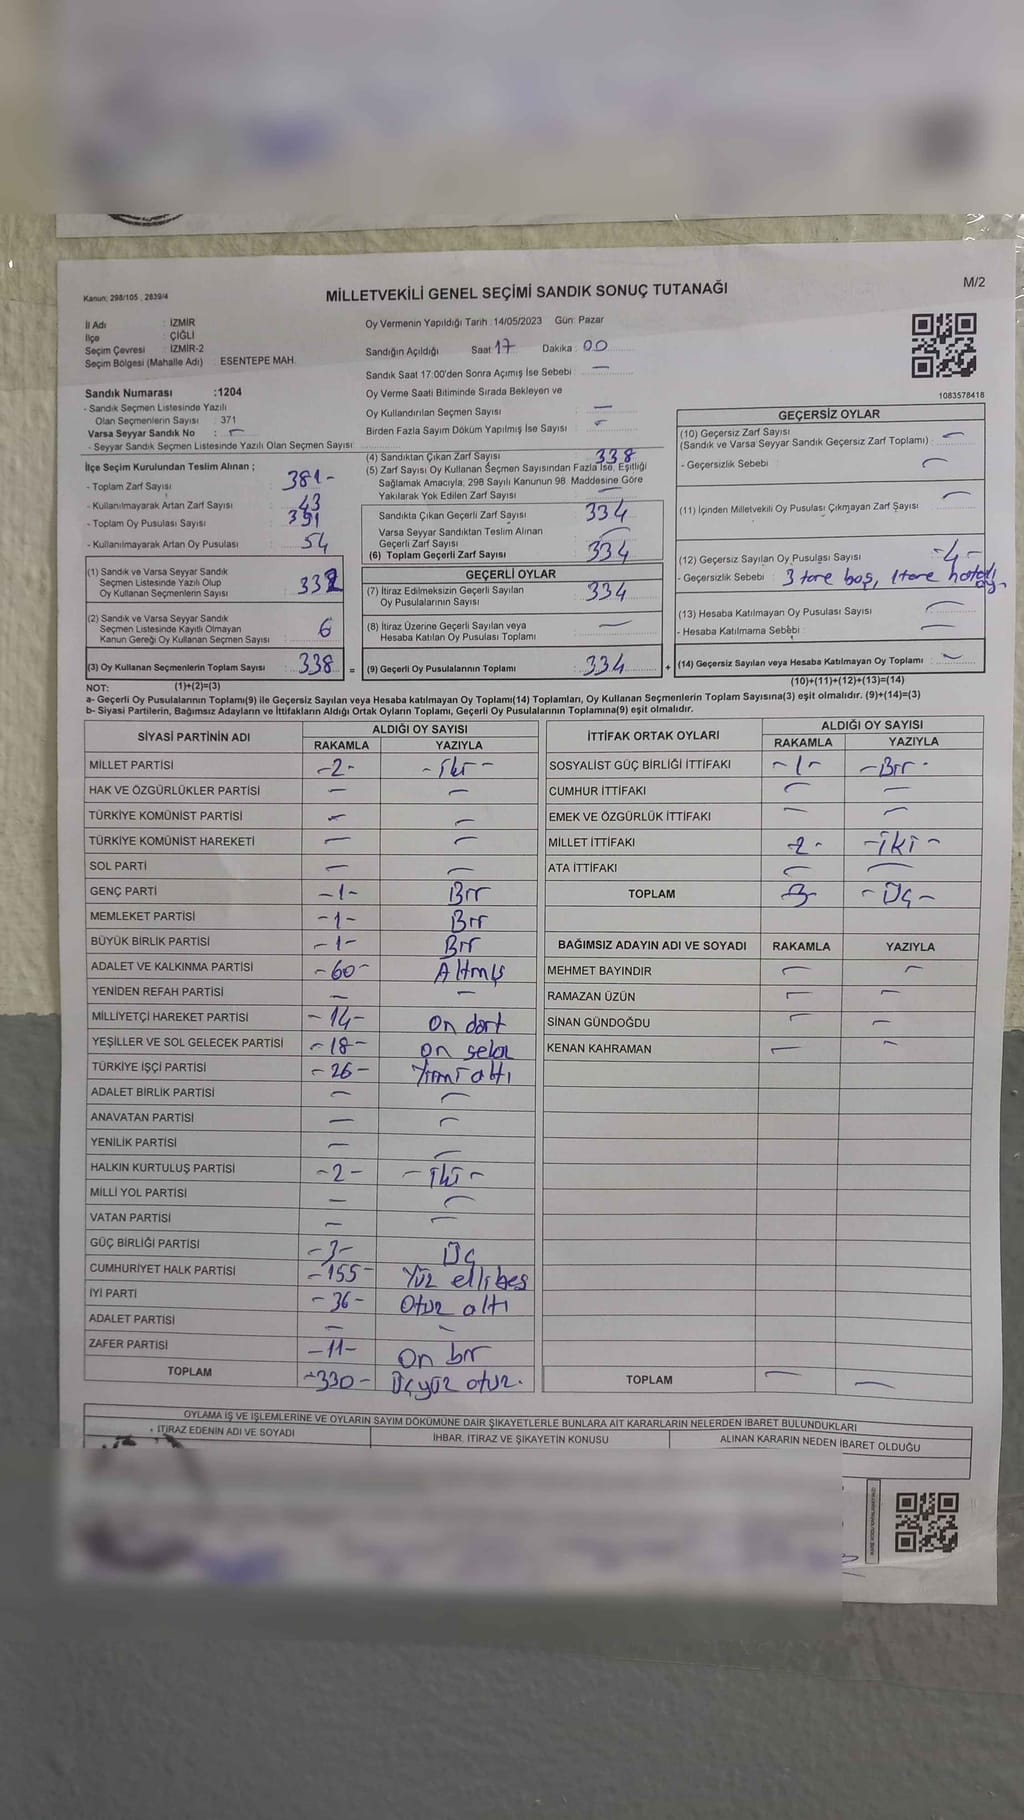 Kanun: 298/105 , 2839/4
MİLLETVEKİLİ GENEL SEÇİMİ SANDIK SONUÇ TUTANAĞI
M/2
İl Adı : İZMİR
İlçe : ÇİĞLİ
Seçim Çevresi : İZMİR-2
Seçim Bölgesi (Mahalle Adı) : ESENTEPE MAH.
Oy Vermenin Yapıldığı Tarih :14/05/2023 Gün: Pazar
Sandığın Açıldığı Saat 17 Dakika : 00
Sandık Saat 17:00'den Sonra Açımış İse Sebebi : —
Oy Verme Saati Bitiminde Sırada Bekleyen ve
Oy Kullandırılan Seçmen Sayısı : —
Birden Fazla Sayım Döküm Yapılmış İse Sayısı : —
1083578418
Sandık Numarası :1204
- Sandık Seçmen Listesinde Yazılı
Olan Seçmenlerin Sayısı : 371
Varsa Seyyar Sandık No : —
- Seyyar Sandık Seçmen Listesinde Yazılı Olan Seçmen Sayısı:
İlçe Seçim Kurulundan Teslim Alınan ;
- Toplam Zarf Sayısı : 381-
- Kullanılmayarak Artan Zarf Sayısı : 43
- Toplam Oy Pusulası Sayısı : 391
- Kullanılmayarak Artan Oy Pusulası : 54
(1) Sandık ve Varsa Seyyar Sandık
Seçmen Listesinde Yazılı Olup
Oy Kullanan Seçmenlerin Sayısı : 332
(2) Sandık ve Varsa Seyyar Sandık
Seçmen Listesinde Kayıtlı Olmayan
Kanun Gereği Oy Kullanan Seçmen Sayısı : 6
(3) Oy Kullanan Seçmenlerin Toplam Sayısı : 338 =
(4) Sandıktan Çıkan Zarf Sayısı : 338
(5) Zarf Sayısı Oy Kullanan Seçmen Sayısından Fazla İse, Eşitliği
Sağlamak Amacıyla, 298 Sayılı Kanunun 98. Maddesine Göre
Yakılarak Yok Edilen Zarf Sayısı : —
Sandıkta Çıkan Geçerli Zarf Sayısı : 334
Varsa Seyyar Sandıktan Teslim Alınan
Geçerli Zarf Sayısı : —
(6) Toplam Geçerli Zarf Sayısı : 334
GEÇERLİ OYLAR
(7) İtiraz Edilmeksizin Geçerli Sayılan
Oy Pusulalarının Sayısı : 334
(8) İtiraz Üzerine Geçerli Sayılan veya
Hesaba Katılan Oy Pusulası Toplamı : —
(9) Geçerli Oy Pusulalarının Toplamı : 334 +
GEÇERSİZ OYLAR
(10) Geçersiz Zarf Sayısı
(Sandık ve Varsa Seyyar Sandık Geçersiz Zarf Toplamı) : —
- Geçersizlik Sebebi : —
(11) İçinden Milletvekili Oy Pusulası Çıkmayan Zarf Sayısı : —
(12) Geçersiz Sayılan Oy Pusulası Sayısı : -4-
- Geçersizlik Sebebi : 3 tane boş, 1 tane hatalı oy.
(13) Hesaba Katılmayan Oy Pusulası Sayısı : —
- Hesaba Katılmama Sebebi : —
(14) Geçersiz Sayılan veya Hesaba Katılmayan Oy Toplamı : —
NOT: (1)+(2)=(3)
(10)+(11)+(12)+(13)=(14)
a- Geçerli Oy Pusulalarının Toplamı(9) ile Geçersiz Sayılan veya Hesaba katılmayan Oy Toplamı(14) Toplamları, Oy Kullanan Seçmenlerin Toplam Sayısına(3) eşit olmalıdır. (9)+(14)=(3)
b- Siyasi Partilerin, Bağımsız Adayların ve İttifakların Aldığı Oyların Toplamı, Geçerli Oy Pusulalarının Toplamına(9) eşit olmalıdır.
SİYASİ PARTİNİN ADI ALDIĞI OY SAYISI
RAKAMLA YAZIYLA
MİLLET PARTİSİ -2- -İki-
HAK VE ÖZGÜRLÜKLER PARTİSİ — —
TÜRKİYE KOMÜNİST PARTİSİ — —
TÜRKİYE KOMÜNİST HAREKETİ — —
SOL PARTİ — —
GENÇ PARTİ -1- Bir
MEMLEKET PARTİSİ -1- Bir
BÜYÜK BİRLİK PARTİSİ -1- Bir
ADALET VE KALKINMA PARTİSİ -60- Altmış
YENİDEN REFAH PARTİSİ — —
MİLLİYETÇİ HAREKET PARTİSİ -14- On dört
YEŞİLLER VE SOL GELECEK PARTİSİ -18- On sekiz
TÜRKİYE İŞÇİ PARTİSİ -26- Yirmi altı
ADALET BİRLİK PARTİSİ — —
ANAVATAN PARTİSİ — —
YENİLİK PARTİSİ — —
HALKIN KURTULUŞ PARTİSİ -2- -İki-
MİLLİ YOL PARTİSİ — —
VATAN PARTİSİ — —
GÜÇ BİRLİĞİ PARTİSİ -3- Üç
CUMHURİYET HALK PARTİSİ -155- Yüz elli beş
İYİ PARTİ -36- Otuz altı
ADALET PARTİSİ — —
ZAFER PARTİSİ -11- On bir
TOPLAM -330- Üçyüz otuz.
İTTİFAK ORTAK OYLARI ALDIĞI OY SAYISI
RAKAMLA YAZIYLA
SOSYALİST GÜÇ BİRLİĞİ İTTİFAKI -1- -Bir-
CUMHUR İTTİFAKI — —
EMEK VE ÖZGÜRLÜK İTTİFAKI — —
MİLLET İTTİFAKI -2- -İki-
ATA İTTİFAKI — —
TOPLAM -3- -Üç-
BAĞIMSIZ ADAYIN ADI VE SOYADI RAKAMLA YAZIYLA
MEHMET BAYINDIR — —
RAMAZAN ÜZÜN — —
SİNAN GÜNDOĞDU — —
KENAN KAHRAMAN — —
TOPLAM — —
OYLAMA İŞ VE İŞLEMLERİNE VE OYLARIN SAYIM DÖKÜMÜNE DAİR ŞİKAYETLERLE BUNLARA AİT KARARLARIN NELERDEN İBARET BULUNDUKLARI
İTİRAZ EDENİN ADI VE SOYADI İHBAR, İTİRAZ VE ŞİKAYETİN KONUSU ALINAN KARARIN NEDEN İBARET OLDUĞU